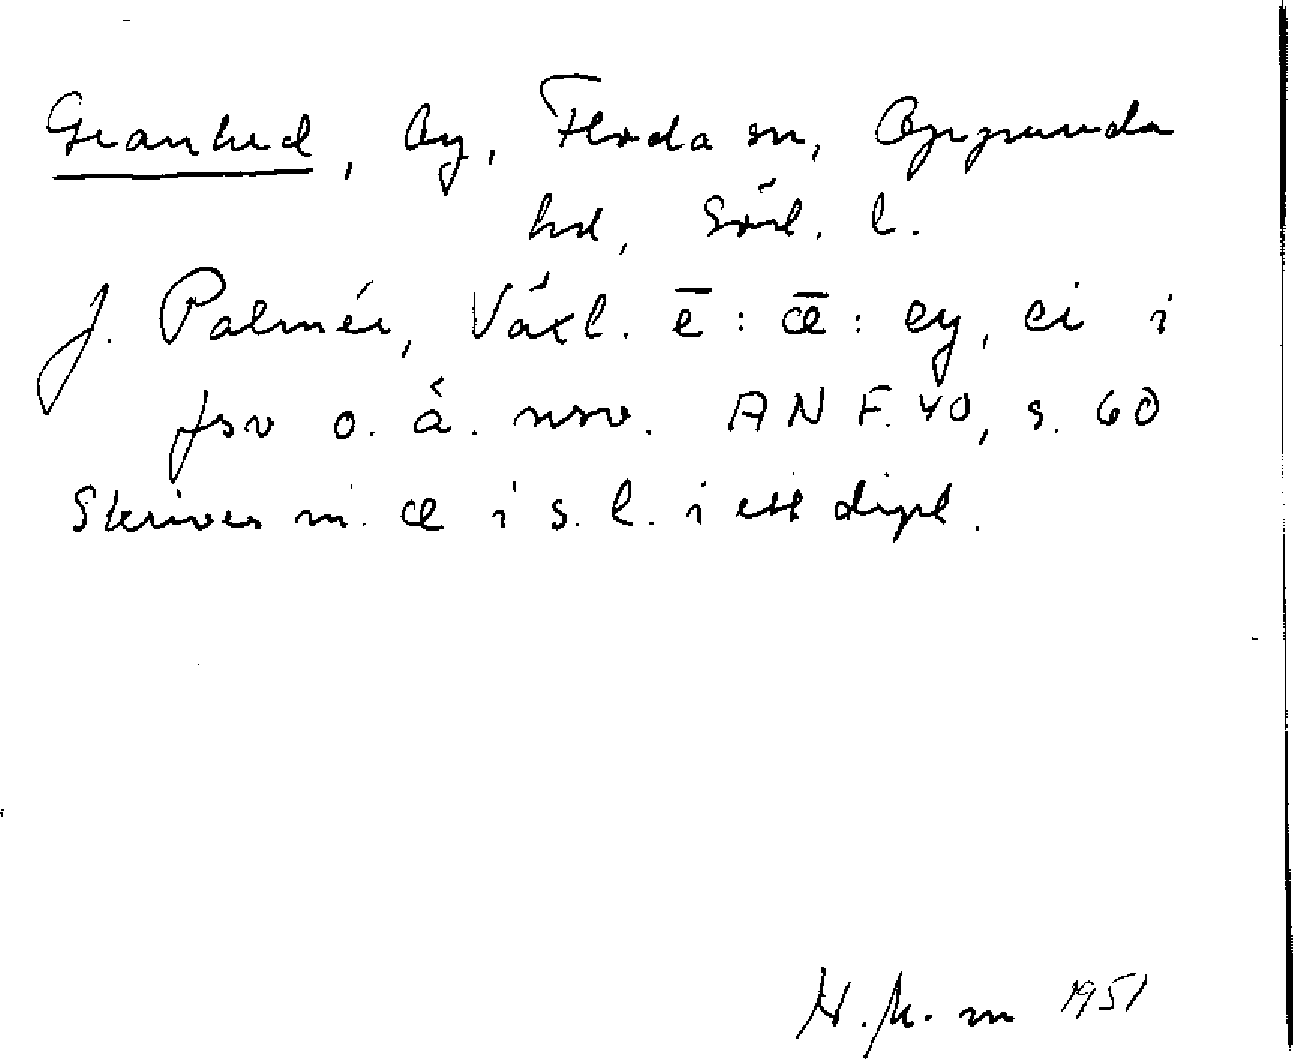 Granhed, by, Floda sn, Oppunda
hd, Södl. l.
J. Palmér, Växl. ē : ǣ : ey, ei i
fsv o. ä. nsv. ANF. 40, s. 60
Skrives m. æ i s. l. i ett dipl.
1951